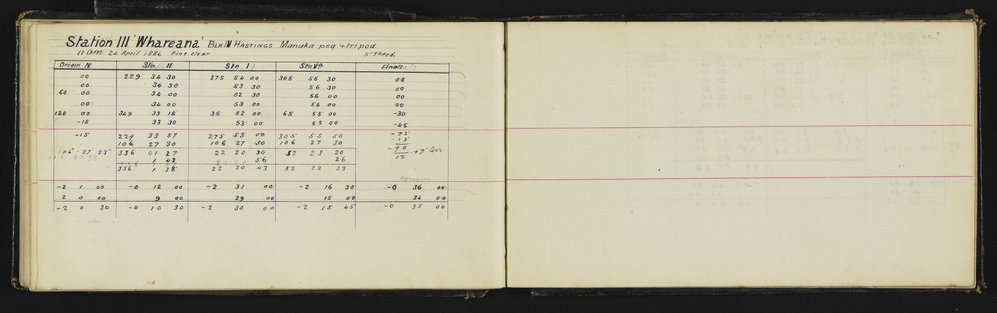 Station III 'Whareana' Blk IV Hastings Manuka peg & tripod
11 am. 24 April 1886 Fine clear 5" Theod.
Origin N Stn II Stn I Stn Finals
00 229 34 30 275 54 00 305 56 30 00
00 34 30 53 30 56 30 00
60 00 34 00 52 30 56 00 00
00 34 00 53 00 56 00 00
120 00 349 33 15 35 52 00 65 55 00 -30
-15 33 30 53 00 55 00 -45
-15 229 33 57 275 53 00 305 55 50 -75
106 27 30 106 27 30 106 27 30 -15
106 27 23 336 01 27 22 20 30 52 23 20 -90
1 48 56 26 12
336 1 38 22 20 43 52 23 23
-2 1 00 -0 12 00 -2 31 00 -2 16 30 -0 36 00
2 0 00 9 00 29 00 15 00 34 00
-2 0 30 -0 10 30 -2 30 00 -2 15 45 -0 35 00